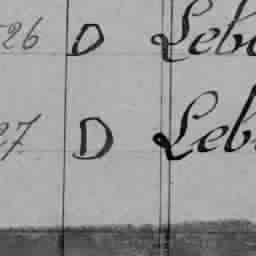 526 D Leb
27 D Leb